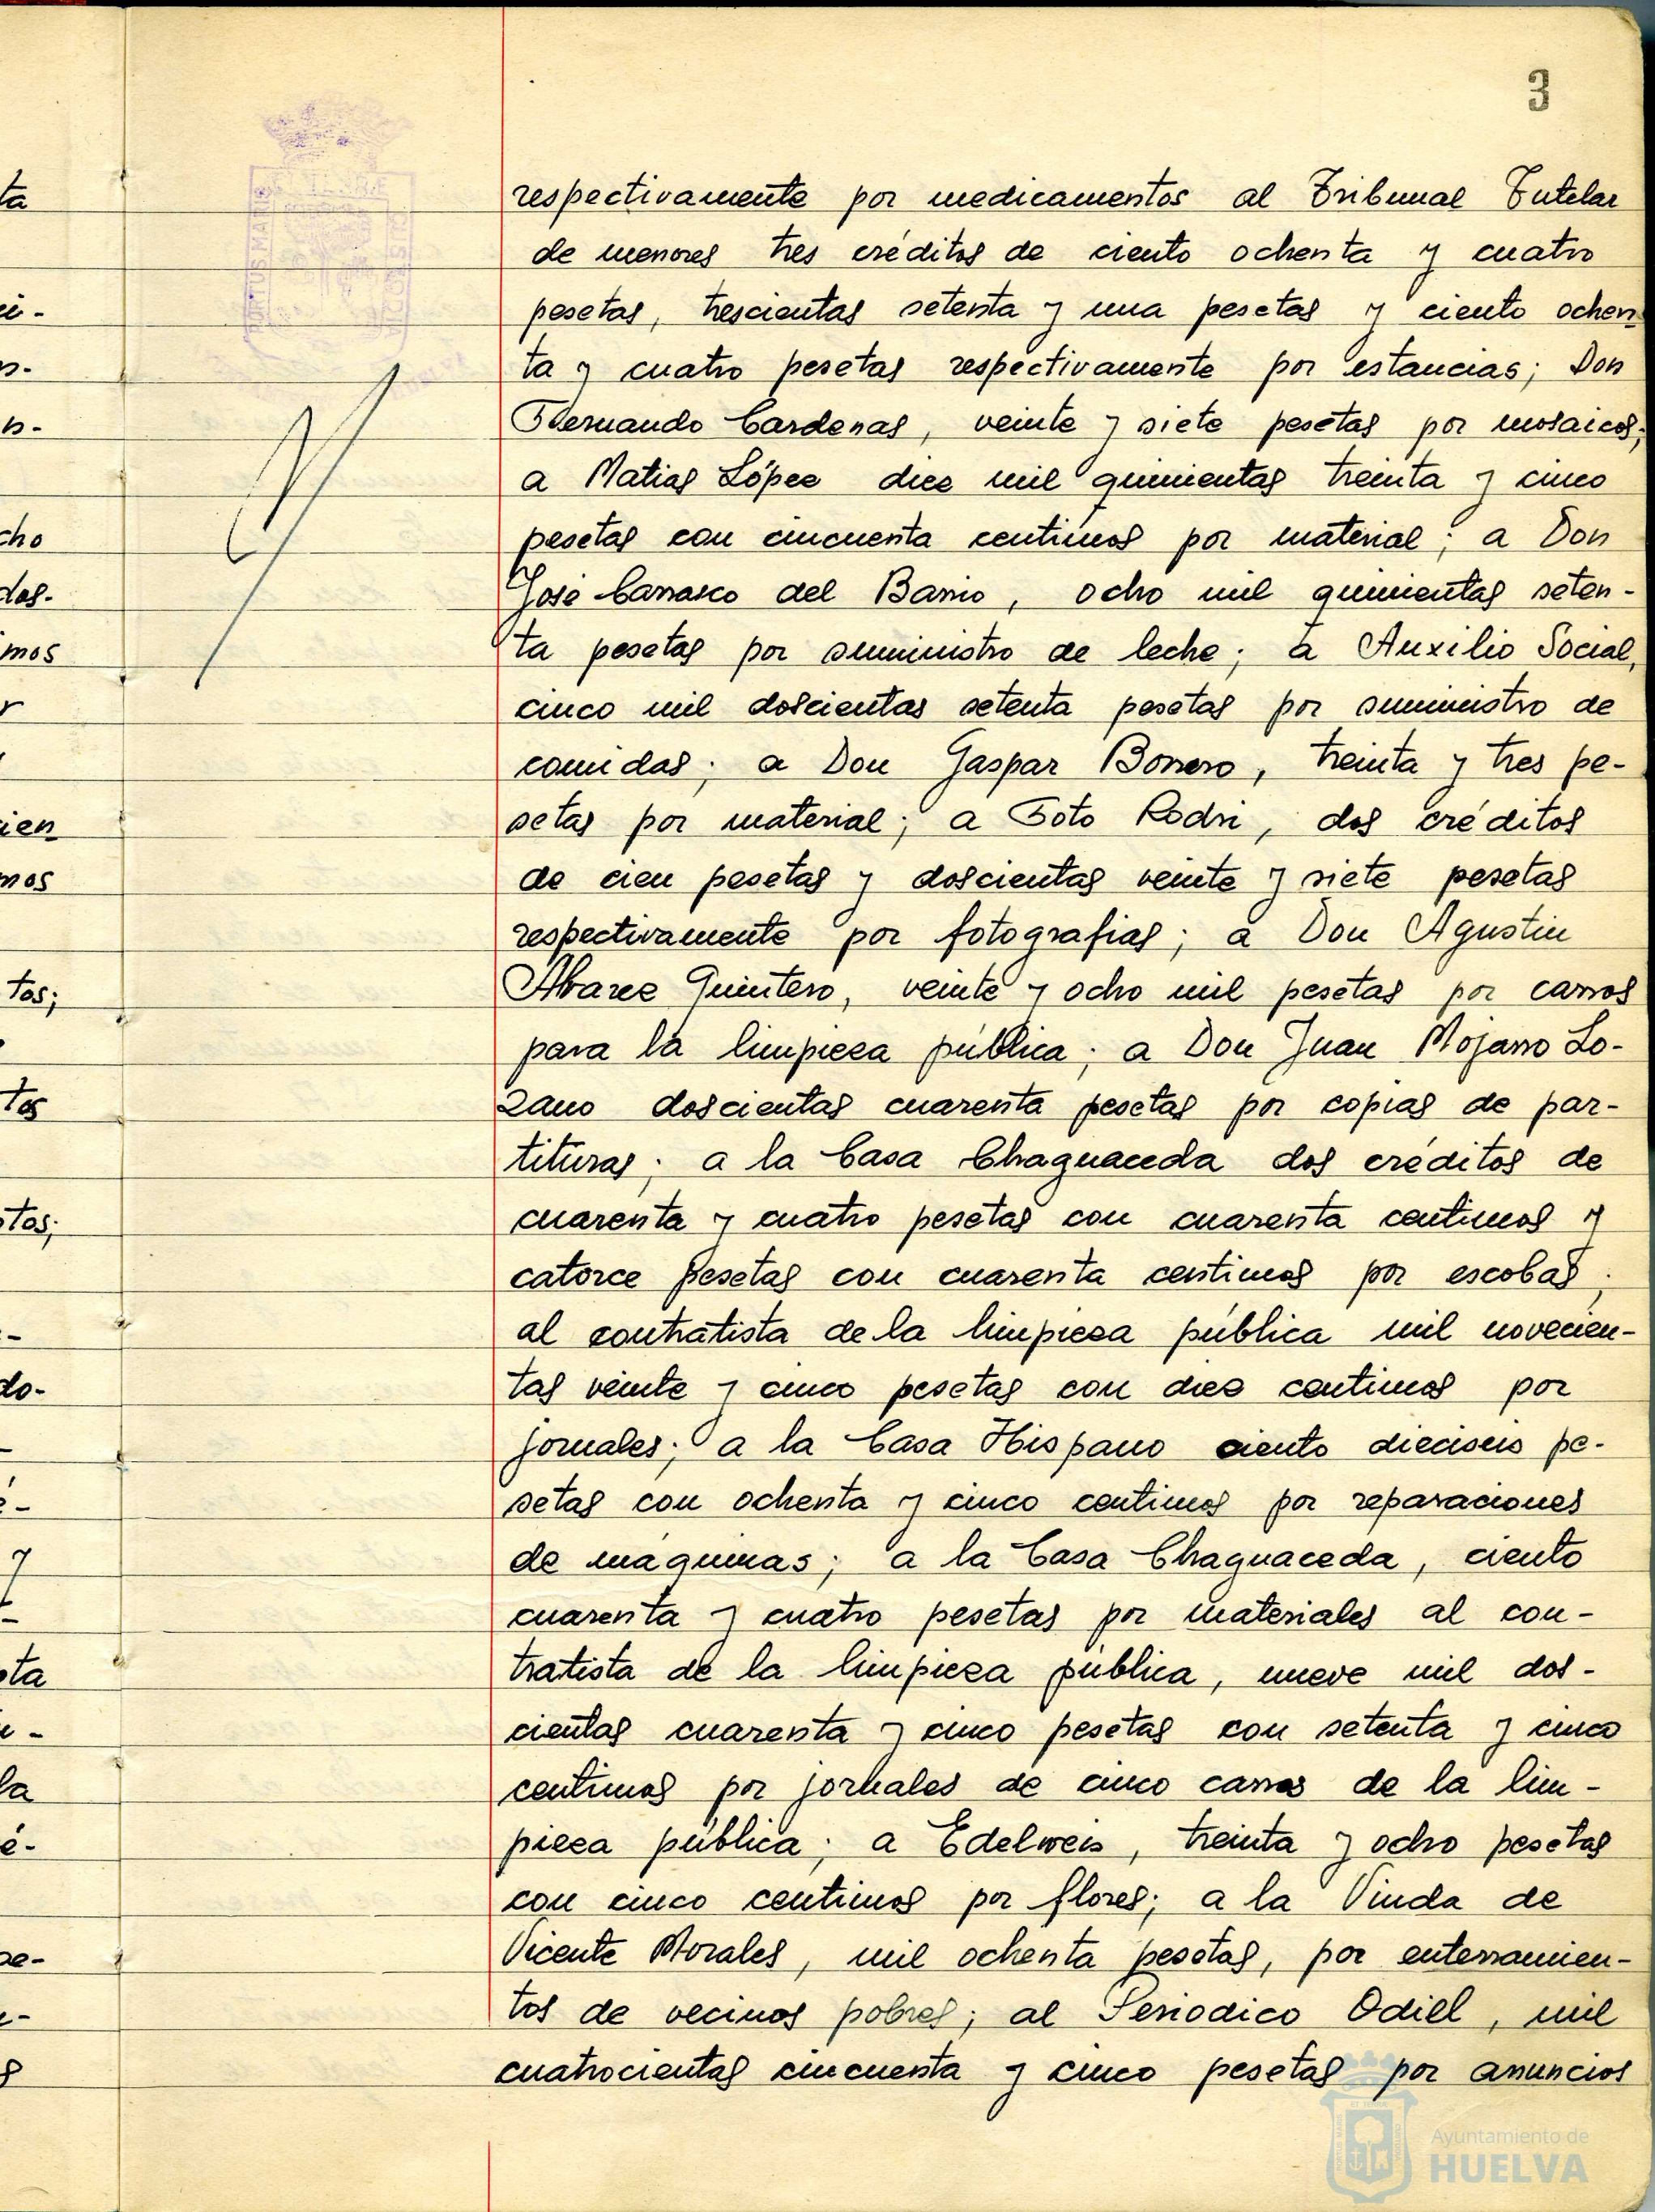 3
respectivamente por medicamentos al Tribunal Tutelar
de menores tres créditos de ciento ochenta y cuatro
pesetas, trescientas setenta y una pesetas y ciento ochen
ta y cuatro pesetas respectivamente por estancias; Don
Hernando Cardenas, veinte y siete pesetas por mosaicos;
a Matias López diez mil quinientas treinta y cinco
pesetas con cincuenta centimos por material; a Don
José Carrasco del Barrio, ocho mil quinientas seten-
ta pesetas por suministro de leche; a Auxilio Social,
cinco mil doscientas setenta pesetas por suministro de
comidas; a Don Gaspar Borrero, treinta y tres pe-
setas por material; a Foto Rodri, dos créditos
de cien pesetas y doscientas veinte y siete pesetas
respectivamente por fotografias; a Don Agustin
Alvarez Quintero, veinte y ocho mil pesetas por carros
para la limpieza pública; a Don Juan Mojarro Lo-
zano doscientas cuarenta pesetas por copias de par-
tituras; a la Casa Chaguaceda dos créditos de
cuarenta y cuatro pesetas con cuarenta centimos y
catorce pesetas con cuarenta centimos por escobas;
al contratista de la limpieza pública mil novecien-
tas veinte y cinco pesetas con diez centimos por
jornales; a la Casa Hispano ciento dieciseis pe-
setas con ochenta y cinco centimos por reparaciones
de maquinas; a la Casa Chaguaceda, ciento
cuarenta y cuatro pesetas por materiales al con-
tratista de la limpieza pública, nueve mil dos-
cientas cuarenta y cinco pesetas con setenta y cinco
centimos por jornales de cinco carros de la lim-
pieza pública; a Edelweis, treinta y ocho pesetas
con cinco centimos por flores; a la Viuda de
Vicente Morales, mil ochenta pesetas, por enterramien-
tos de vecinos pobres; al Periodico Odiel, mil
cuatrocientas cincuenta y cinco pesetas por anuncios
Ayuntamiento de
HUELVA